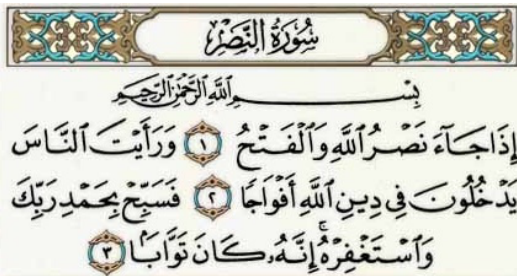 سُورَةُ النَّصْرِ
بِسْمِ اللَّهِ الرَّحْمَٰنِ الرَّحِيمِ
إِذَا جَآءَ نَصْرُ ٱللَّهِ وَٱلْفَتْحُ ١ وَرَأَيْتَ ٱلنَّاسَ
يَدْخُلُونَ فِي دِينِ ٱللَّهِ أَفْوَاجًا ٢ فَسَبِّحْ بِحَمْدِ رَبِّكَ
وَٱسْتَغْفِرْهُ ۚ إِنَّهُۥ كَانَ تَوَّابًۢا ٣